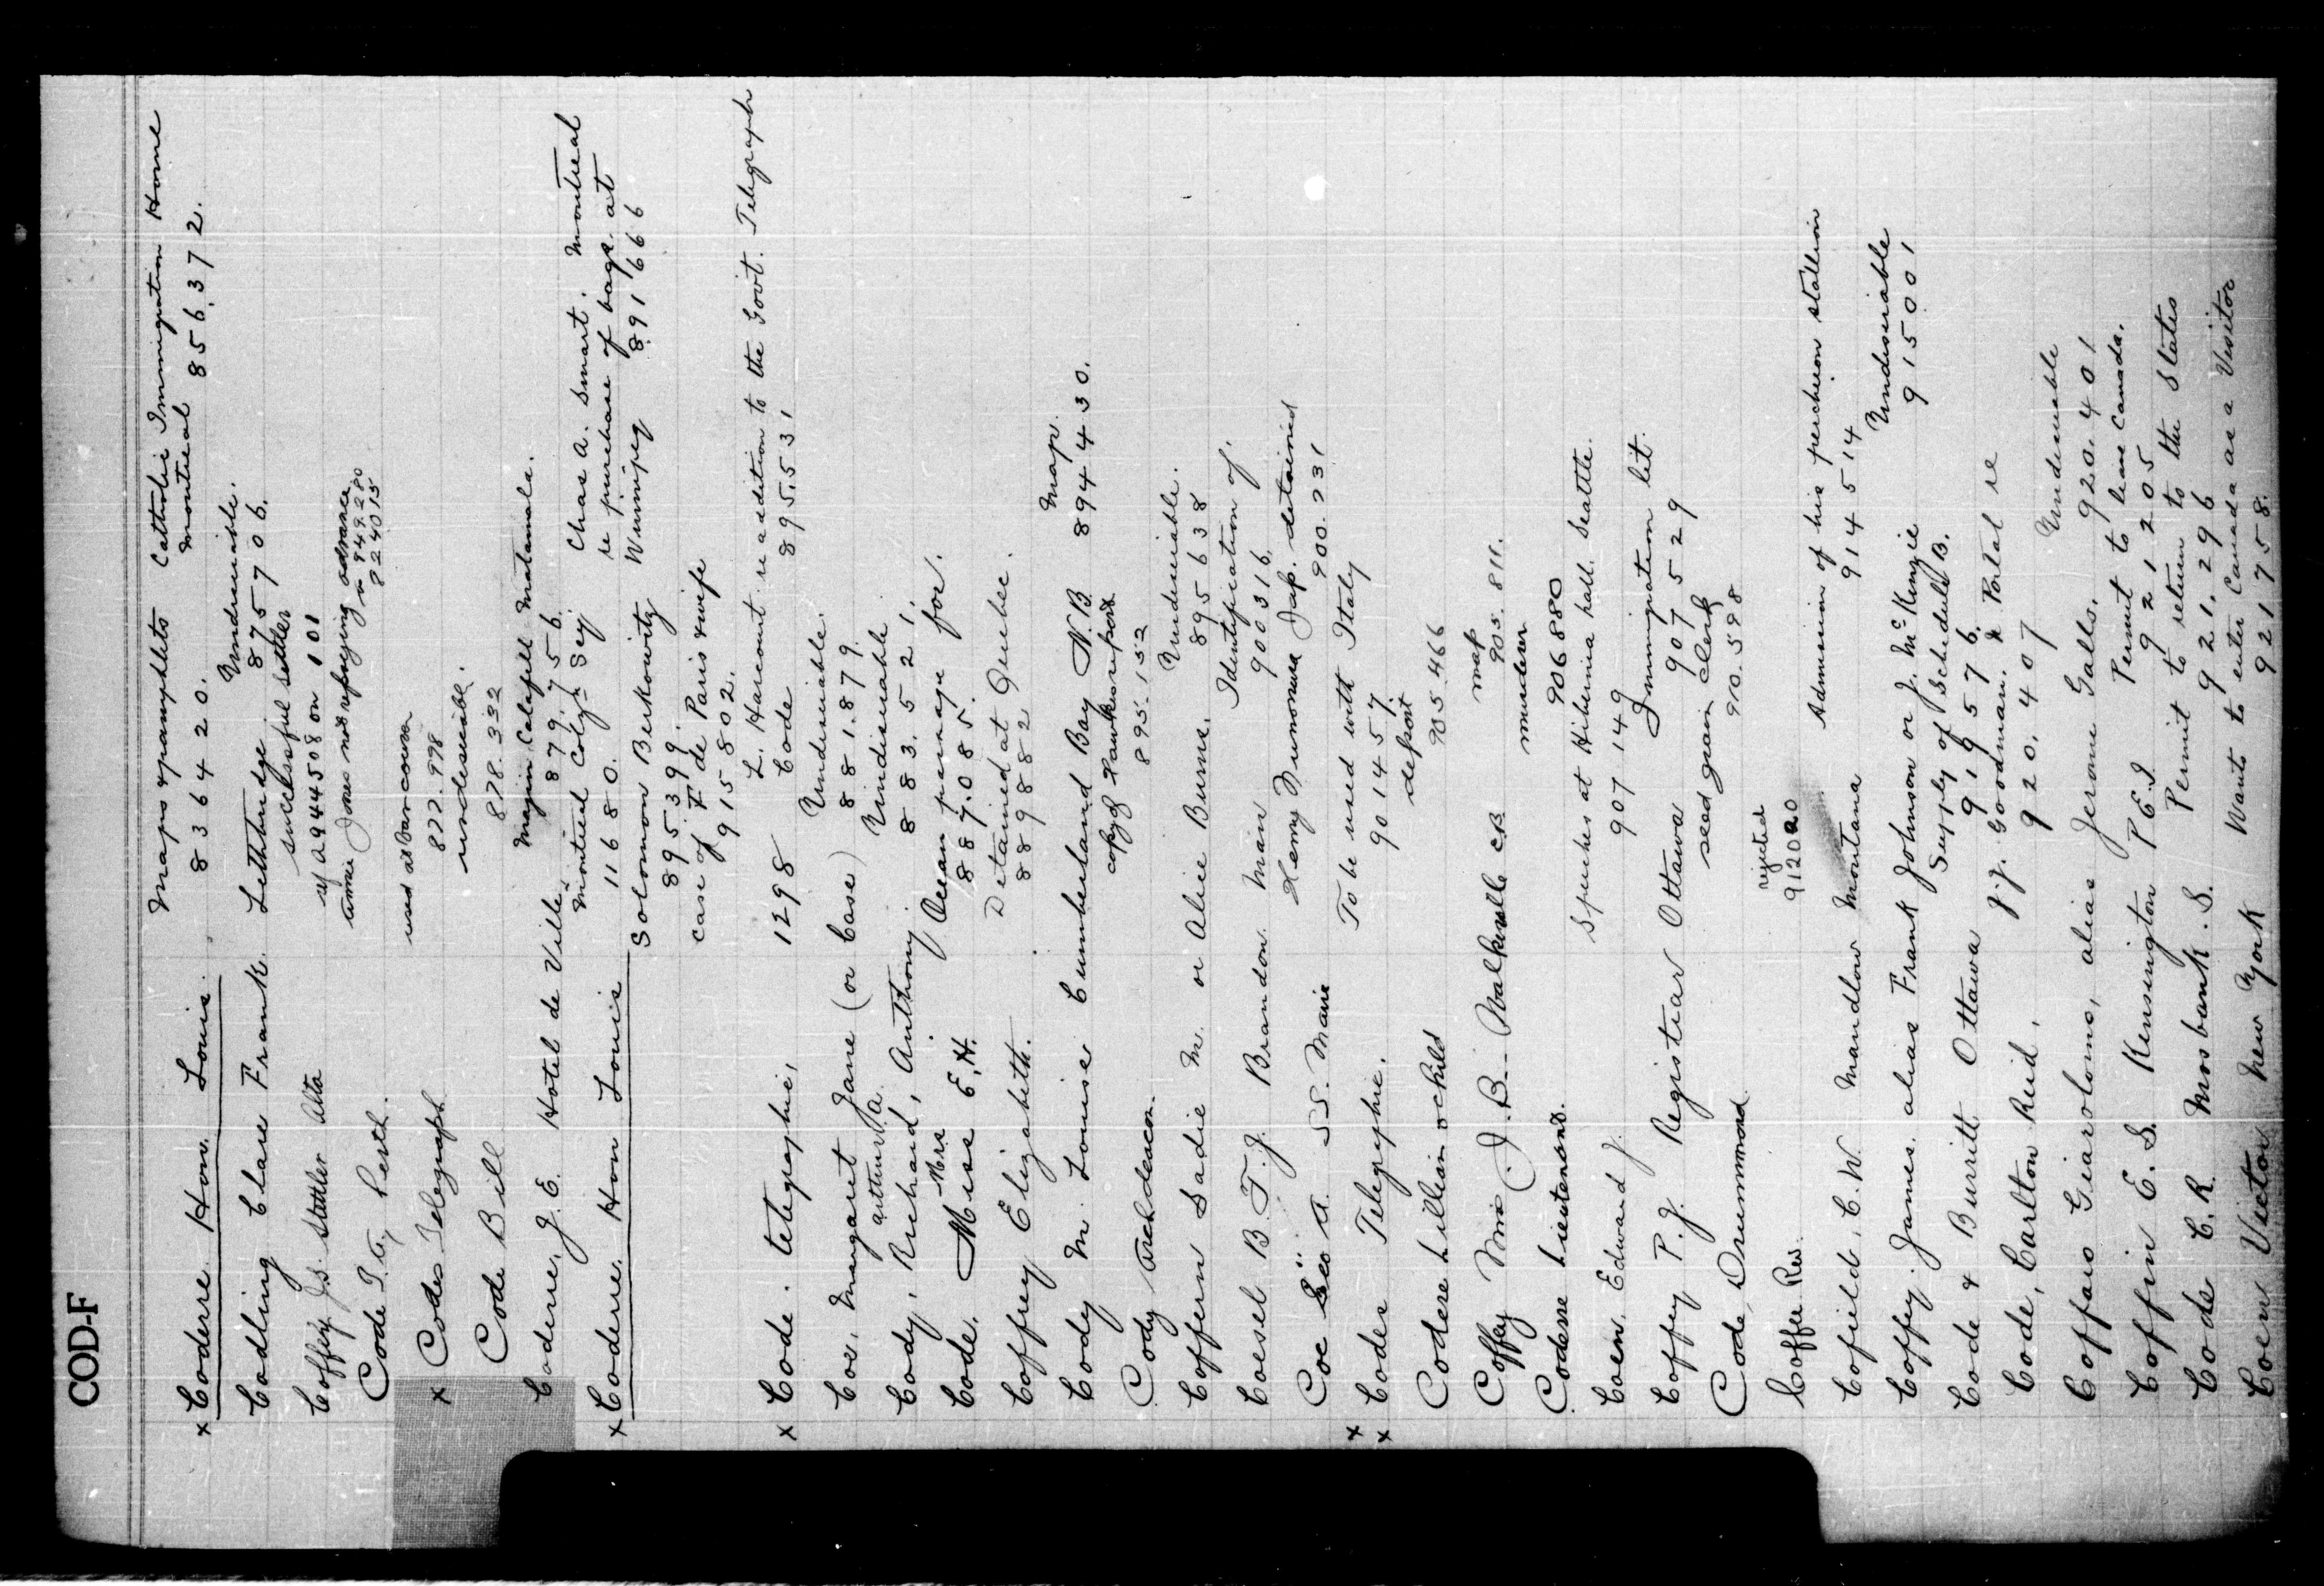 COD-F
x Coderre Hon. Louis. Maps & pamphlets Catholic Immigration Home
836420. Montreal 856372.
Codling Clare Frank. Lethbridge Undesirable.
875706.
Coffey J.S. Stettler Alta successful settler
A944508 on 101
Code T.G. Perth. Jones not advance
849280
824015
x Codes Telegraph used at Vancouver
822.998
Code Bill undesirable.
878.332
Coderre, J.E. Hotel de Ville Matamala.
Montreal 879756.
x Coderre, Hon Louis 11680. Chas A. Smart. Montreal
re purchase of bags. at
Solomon Berkowitz Winnipeg 891666
895399.
case of F de Paris & wife
915802.
L. Harcourt re addition to the Govt. Telegraph
x Code. telegraphic, 1298 Code 895531
Coe, Margaret Jane (or Case) Undesirable.
881.879.
Cody, Richard, Arthur A. Anthony Undesirable
883.521.
Code. Mrs Miss E.H. Ocean passage for.
887.085.
Coffrey Elizabeth. Detained at Quebec.
889882
Cody M. Louise Cumberland Bay N.B. Map.
894430.
Cody Archdeacon. copy of Hawkes report
895.152
Coffern Sadie M. or Alice Burns. Undesirable.
895638
Coesel B.T.J. Brandon Man Identification of,
900316.
Coe Geo A. S.S. Marie Henry Jap. detained
900.931
x
x Codes Telegraphic. To be used with Italy
901457.
Codere Lillian & child deport
905.466
Coffey Mrs J.B. Walkerville C.B map
905.811.
Coderre Lieutenant. murder
906880
Coen, Edward J. Speeches at Hibernia hall. Seattle.
907149
Coffey P.J. Registrar Ottawa Immigration lit.
907529
Code, Drummond seed grain clerk
910.598
Coffee Rev. rejected
912020
Cofield, C.W. Mandlow Montana Admission of his percheron stallion
914514
Coffey. James. alias Frank Johnson or J. McKenzie Undesirable
915001
Code & Burritt Ottawa Supply of Schedule B.
919576.
Code, Carlton Reid. J.J. Goodman. Portal re
920.407
Coffaro Giarolomo, alias Jerome Gallo. Undesirable
920.401
Coffin E.S. Kensington P.E.I Permit to leave Canada.
921205
Code C.R. Mosbank. S. Permit to return to the States
921.296
Coen Victor New York Wants to enter Canada as a Visitor
921758.